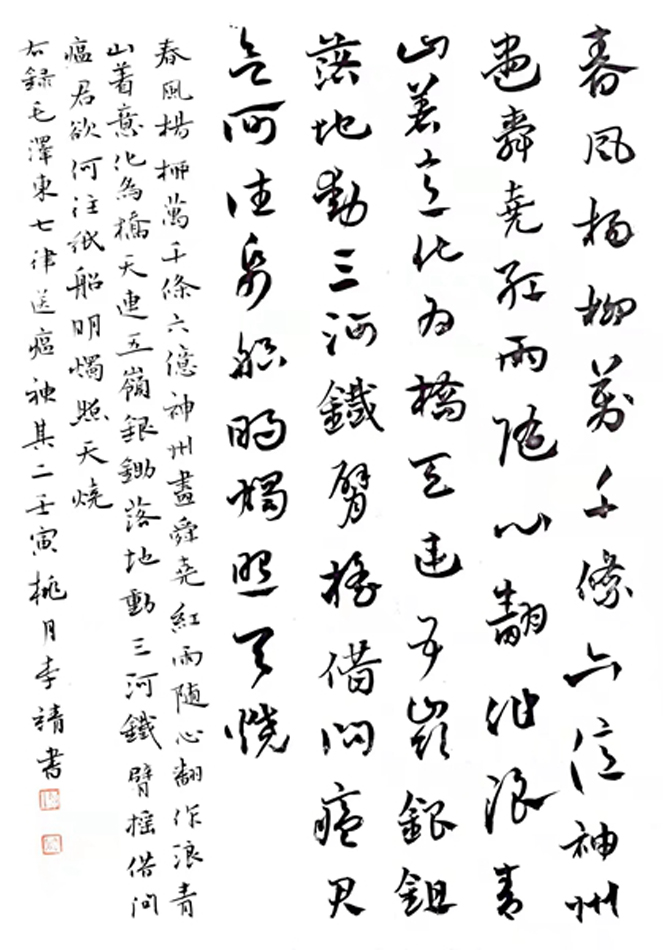 春風楊柳萬千條六億神州
盡舜堯紅雨随心翻作浪青
山着意化为橋天連五嶺銀鋤
落地動三河鐵臂摇借问瘟君
欲何往紙船明燭照天燒
春風楊柳萬千條六億神州盡舜堯紅雨随心翻作浪青
山着意化為橋天連五嶺銀鋤落地動三河鐵臂摇借问
瘟君欲何往紙船明燭照天燒
右録毛澤東七律送瘟神其二壬寅桃月李靖書